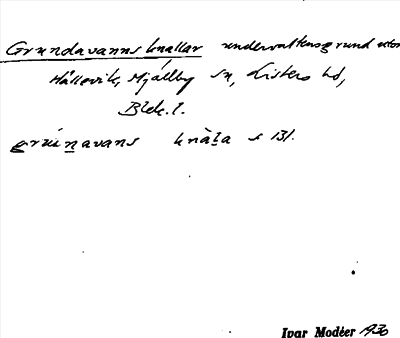 Grundavanns knallar undervattensgrund utom
Hällevik, Mjällby sn, Listers hd,
Blek. l.
knàļa s 131.
Ivar Modéer 1930